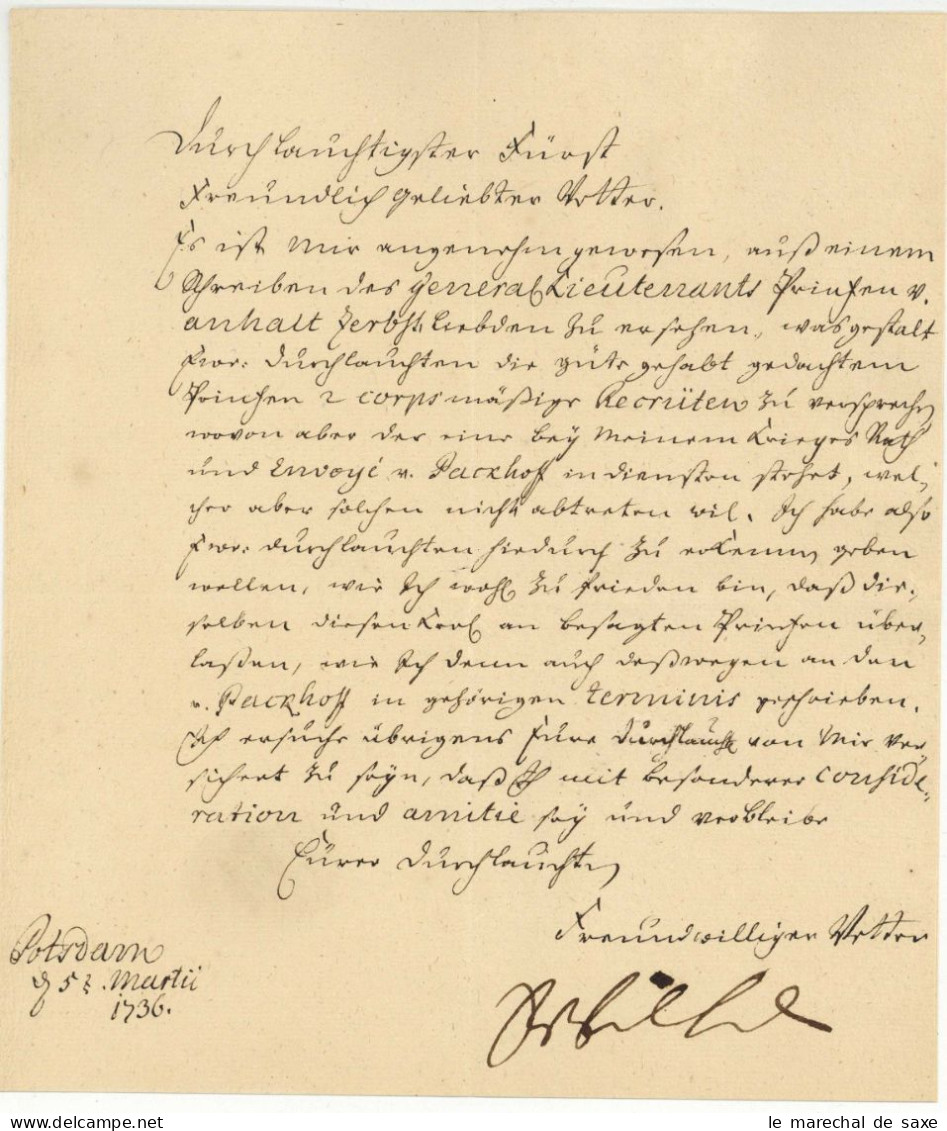 Durchlauchtigster Fürst
Freundlich geliebter Vetter.
Es ist Mir angenehm gewesen, auß einem
Schreiben des General Lieutenants Printzen v.
anhalt Zerbst liebden zu ersehen, was gestalt
Ewr: Durchlauchten die güte gehabt gedachtem
Printzen 2 corps mäßige Recrüten zu versprechen
wovon aber der eine bey Meinem Krieges Rath
und Envoyé v. Backhoff in diensten stehet, wel,
cher aber solchen nicht abtreten wil. Ich habe also
Ewr: Durchlauchten hiedurch zu erkennen geben
wollen, wie Ich wohl zu frieden bin, daß die,
selben diesen Kerl an besagten Printzen über,
laßen, wie Ich denn auch deßwegen an den
v. Backhoff in gehörigen terminis geschrieben.
Ich ersuche übrigens Eure Durchlaucht von Mir ver
sichert zu seyn, daß Ich mit besonderer conside,,
ration und amitié sey und verbleibe
Eurer Durchlauchten
Freundwilliger Vetter
Potsdam
d 5t. Martii
1736.
le marechal de saxe